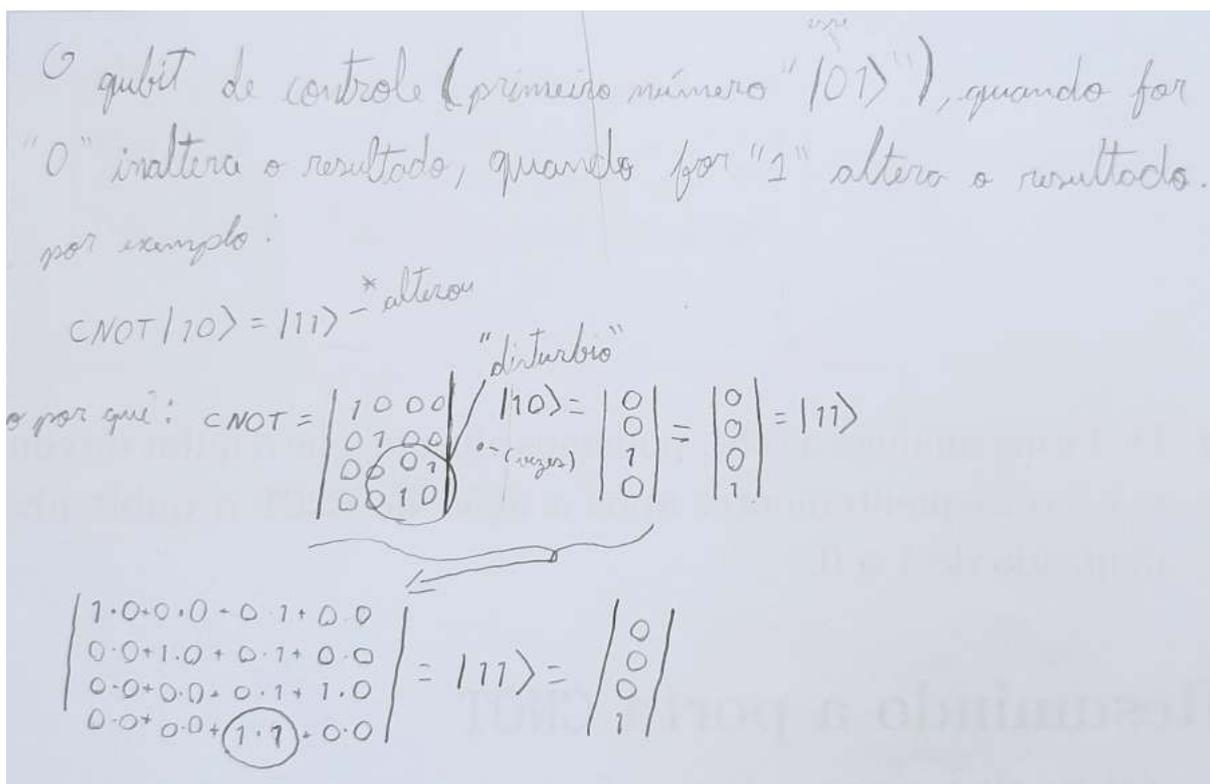 esse
O qubit de controle (primeiro número "|01⟩"), quando for
"0" inaltera o resultado, quando for "1" altera o resultado.
por exemplo:
CNOT|10⟩ = |11⟩ - *alterou
"disturbio"
o por quê: CNOT = |1 0 0 0| |10⟩ = |0| = |0| = |11⟩
|0 1 00| |0| |0|
|00 01| •-(vezes) |1| |0|
|00 10| |0| |1|
|1·0+0·0+0·1+0·0| |0|
|0·0+1·0+0·1+0·0| = |11⟩ = |0|
|0·0+0·0+0·1+1·0| |0|
|0·0+0·0+1·1+0·0| |1|